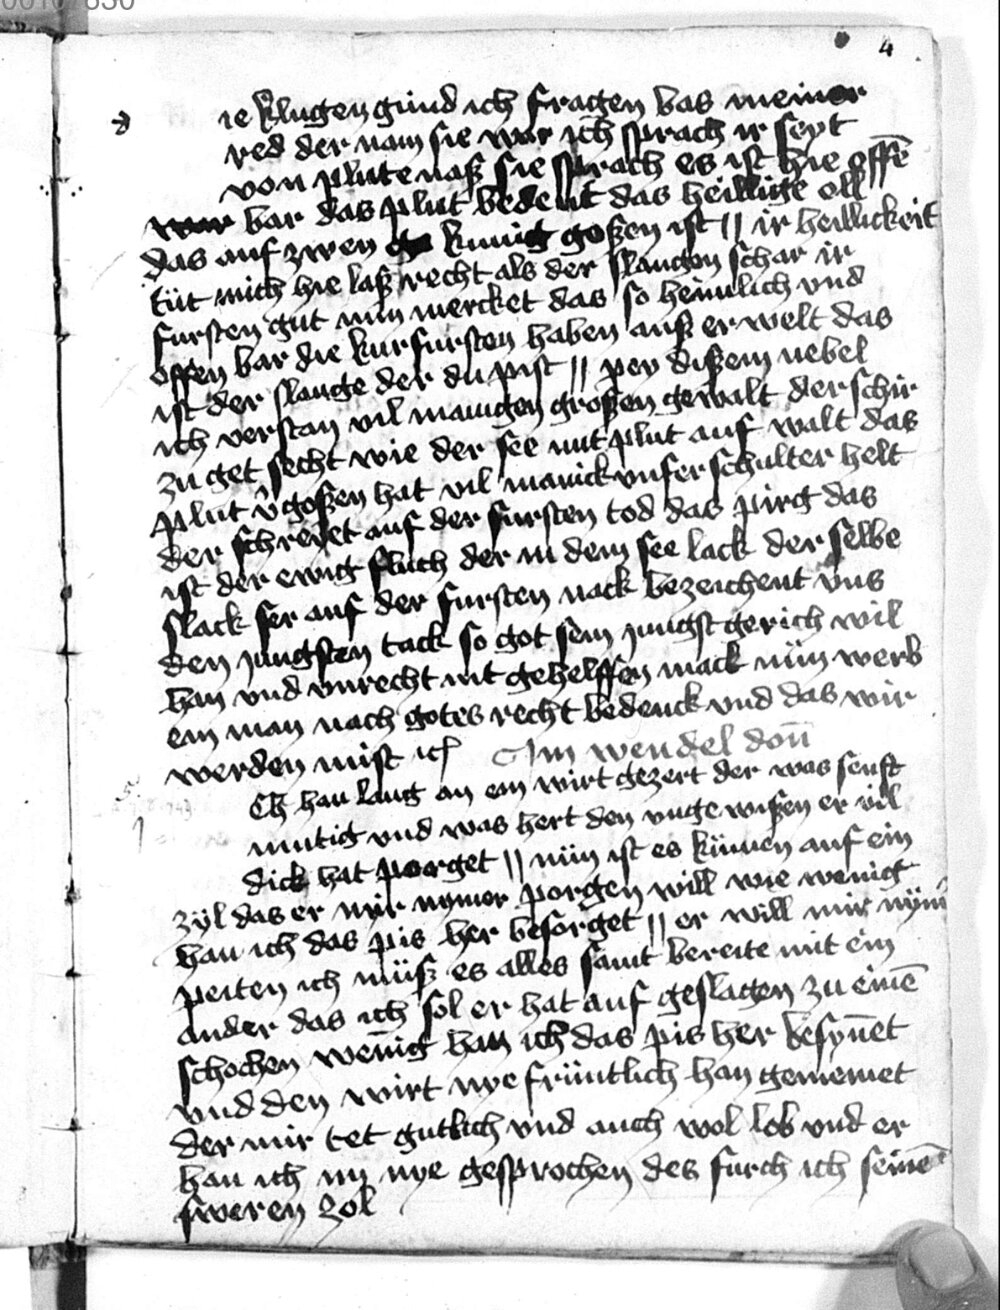 00107830
4
ie klugen gund ich fragen bas meiner
red der nam sie war ich sprach ir seyt
von plute naß sie sprach es ist hie offē
war bar das plut bedeut das heillige oll
das auf zwen kunig goßen ist || ir heillickeit
tüt mich hie laß recht als der slangen schar ir
fursten gut nun mercket das so heimlich vnd
offen bar die kurfursten haben auß er welt das
ist der slange der du pist || pey dißem nebel
ich verstan vil manigen großen gewalt der schir
zu get secht wie der see mit plut auf walt das
plut v̄goßen hat vil manick vnser schulter helt
der schreyet auf der fursten tod das pirg das
ist der ewig fluch der in dem see lack der selbe
slack ser auf der fursten nack bezeichent vns
den jungsten tack so got sein jungst gerich wil
han vnd vnrecht nit gehelffen mack nün werb
ein man nach gotes recht bedenck vnd das wir
werden mist ich Im wendel don̄
Ch han lang an ein wirt gezert der was senft
mutig vnd was hert den vnge wißen er vil
dick hat porget || nün ist es kümen auf ein
zyl das er mir nymer porgen will wie wenig
han ich das pis her besorget || er will mir nym̄
peiten ich müß es alles samt bereite mit ein
ander das ich sol er hat auf geslagen zu eine̅
schochen wenig han ich das pis her besyn̄et
vnd den wirt nye früntlich han gemeinet
der mir tet gutlich vnd auch wol lob vnd er
han ich im nye gesprochen des furch ich seine̅
sweren zol